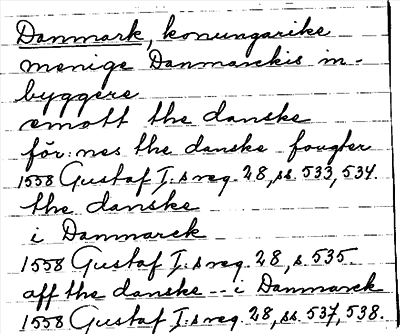 Danmark, konungarike
menige Danmarckis in-
byggere
emott the danske
för:nes the danske fougter
1558 Gustaf I:s reg. 28, ss. 533, 534.
the danske
i Danmarck
1558 Gustaf I:s reg. 28, s. 535.
aff the danske -- i Danmarck
1558 Gustaf I:s reg. 28, ss. 537, 538.